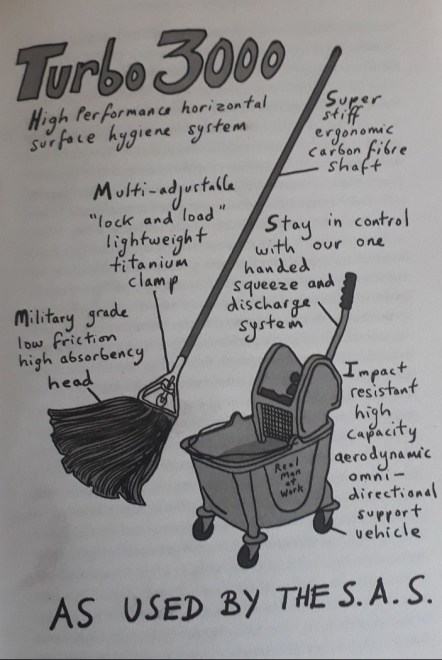 Turbo 3000
High Performance horizontal
surface hygiene system
Super
stiff
ergonomic
carbon fibre
shaft
Multi-adjustable
"lock and load"
lightweight
titanium
clamp
Stay in control
with our one
handed
squeeze and
discharge
system
Military grade
low friction
high absorbency
head
Impact
resistant
high
capacity
aerodynamic
omni-
directional
support
vehicle
Real
Man
at
Work
AS USED BY THE S.A.S.